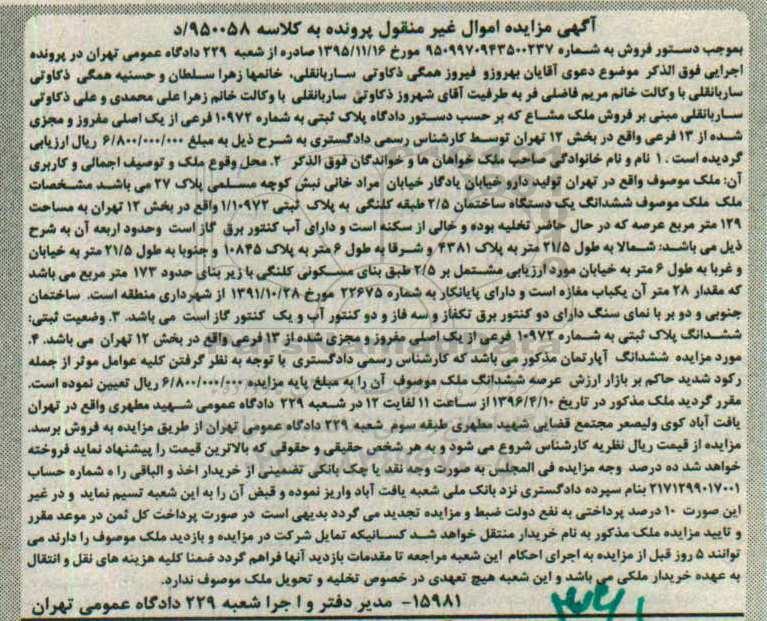 آگهی مزایده اموال غیر منقول پرونده به کلاسه ۹۵۰۰۵۸/د
بموجب دستور فروش به شماره ۹۵۰۹۹۷۰۹۴۳۵۰۰۲۳۷ مورخ ۱۳۹۵/۱۱/۱۶ صادره از شعبه ۲۲۹ دادگاه عمومی تهران در پرونده
اجرایی فوق الذکر موضوع دعوی آقایان بهروزو فیروز همگی ذکاوتی ساربانقلی، خانمها زهرا سلطان و حسنیه همگی ذکاوتی
ساربانقلی با وکالت خانم مریم فاضلی فر به طرفیت آقای شهروز ذکاوتی ساربانقلی با وکالت خانم زهرا علی محمدی و علی ذکاوتی
ساربانقلی مبنی بر فروش ملک مشاع که بر حسب دستور دادگاه پلاک ثبتی به شماره ۱۰۹۷۲ فرعی از یک اصلی مفروز و مجزی
شده از ۱۳ فرعی واقع در بخش ۱۲ تهران توسط کارشناس رسمی دادگستری به شرح ذیل به مبلغ ۶/۸۰۰/۰۰۰/۰۰۰ ریال ارزیابی
گردیده است . ۱ نام و نام خانوادگی صاحب ملک خواهان ها و خواندگان فوق الذکر ۲. محل وقوع ملک و توصیف اجمالی و کاربری
آن: ملک موصوف واقع در تهران تولید دارو خیابان یادگار خیابان مراد خانی نبش کوچه مسلمی پلاک ۲۷ می باشد مشخصات
ملک ملک موصوف ششدانگ یک دستگاه ساختمان ۲/۵ طبقه کلنگی به پلاک ثبتی ۱/۱۰۹۷۲ واقع در بخش ۱۲ تهران به مساحت
۱۲۹ متر مربع عرصه که در حال حاضر تخلیه بوده و خالی از سکنه است و دارای آب کنتور برق گاز است وحدود اربعه آن به شرح
ذیل می باشد: شمالا به طول ۲۱/۵ متر به پلاک ۴۳۸۱ و شرقا به طول ۶ متر به پلاک ۱۰۸۴۵ و جنوبا به طول ۲۱/۵ متر به خیابان
و غربا به طول ۶ متر به خیابان مورد ارزیابی مشتمل بر ۲/۵ طبق بنای مسکونی کلنگی با زیر بنای حدود ۱۷۳ متر مربع می باشد
که مقدار ۲۸ متر آن یکباب مغازه است و دارای پایانکار به شماره ۲۲۶۷۵ مورخ ۱۳۹۱/۱۰/۲۸ از شهرداری منطقه است. ساختمان
جنوبی و دو بر با نمای سنگ دارای دو کنتور برق تکفاز و سه فاز و دو کنتور آب و یک کنتور گاز است می باشد. ۳. وضعیت ثبتی:
ششدانگ پلاک ثبتی به شماره ۱۰۹۷۲ فرعی از یک اصلی مفروز و مجزی شده از ۱۳ فرعی واقع در بخش ۱۲ تهران می باشد. ۴.
مورد مزایده ششدانگ آپارتمان مذکور می باشد که کارشناس رسمی دادگستری با توجه به نظر گرفتن کلیه عوامل موثر از جمله
رکود شدید حاکم بر بازار ارزش عرصه ششدانگ ملک موصوف آن را به مبلغ پایه مزایده ۶/۸۰۰/۰۰۰/۰۰۰ ریال تعیین نموده است.
مقرر گردید ملک مذکور در تاریخ ۱۳۹۶/۴/۱۰ از ساعت ۱۱ لغایت ۱۲ در شعبه ۲۲۹ دادگاه عمومی شهید مطهری واقع در تهران
یافت آباد کوی ولیعصر مجتمع قضایی شهید مطهری طبقه سوم شعبه ۲۲۹ دادگاه عمومی تهران از طریق مزایده به فروش برسد.
مزایده از قیمت ریال نظریه کارشناس شروع می شود و به هر شخص حقیقی و حقوقی که بالاترین قیمت را پیشنهاد نماید فروخته
خواهد شد ده درصد وجه مزایده فی المجلس به صورت وجه نقد یا چک بانکی تضمینی از خریدار اخذ و الباقی را ه شماره حساب
۲۱۷۱۲۹۹۰۱۷۰۰۱ بنام سپرده دادگستری نزد بانک ملی شعبه یافت آباد واریز نموده و قبض آن را به این شعبه تسیم نماید و در غیر
این صورت ۱۰ درصد پرداختی به نفع دولت ضبط و مزایده تجدید می گردد بدیهی است در صورت پرداخت کل ثمن در موعد مقرر
و تایید مزایده ملک مذکور به نام خریدار منتقل خواهد شد کسانیکه تمایل شرکت در مزایده و بازدید ملک موصوف را دارند می
توانند ۵ روز قبل از مزایده به اجرای احکام این شعبه مراجعه تا مقدمات بازدید آنها فراهم گردد ضمنا کلیه هزینه های نقل و انتقال
به عهده خریدار ملکی می باشد و این شعبه هیچ تعهدی در خصوص تخلیه و تحویل ملک موصوف ندارد.
۱۵۹۸۱- مدیر دفتر و اجرا شعبه ۲۲۹ دادگاه عمومی تهران